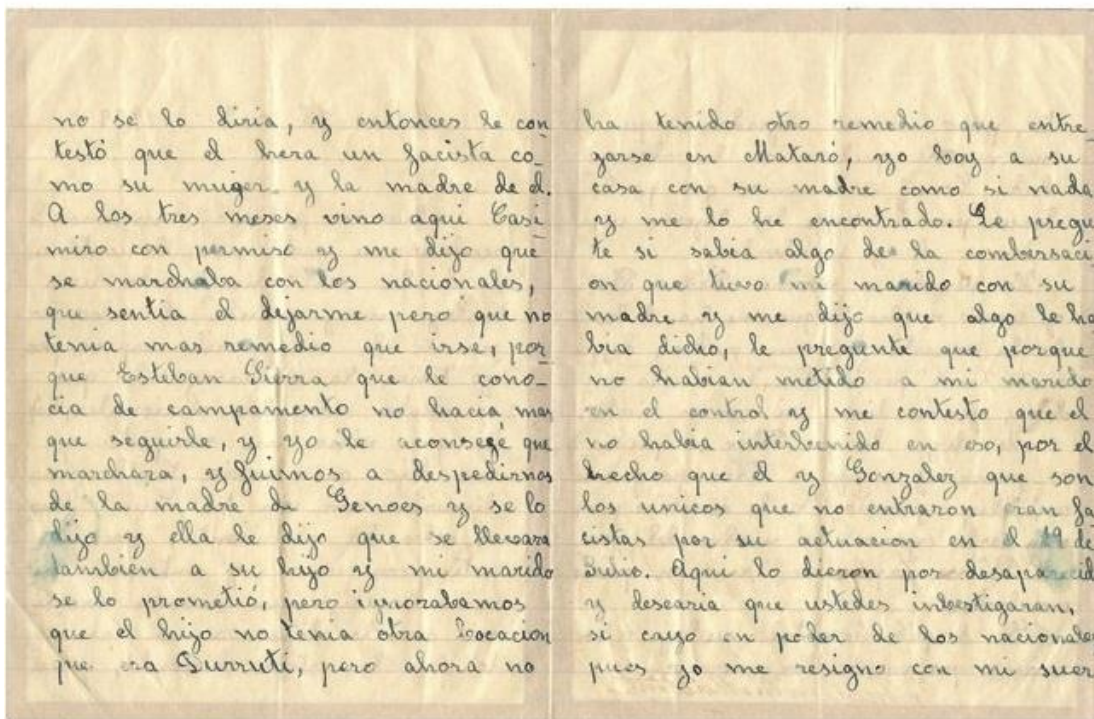 no se lo diria, y entonces le con
testó que el hera un facista co_
mo su muger y la madre de el.
A los tres meses vino aqui Casi
miro con permiso y me dijo que
se marchaba con los nacionales,
que sentia el dejarme pero que no
tenia mas remedio que irse, por
que Esteban Sierra que le cono_
cia de campamento no hacia mas
que seguirle, y yo le aconsegé que
marchara, y fuimos a despedirnos
de la madre de Genoes y se lo
dijo y ella le dijo que se llevara
tambien a su hijo y mi marido
se lo prometió, pero ignorabamos
que el hijo no tenia otra bocacion
que era Durruti, pero ahora no
ha tenido otro remedio que entre_
garse en Mataró, yo boy a su
casa con su madre como si nada
y me lo he encontrado. Le pregu
te si sabia algo de la combersaci
on que tuvo mi marido con su
madre y me dijo que algo le ha
bia dicho, le pregunte que porque
no habian metido a mi marido
en el control y me contesto que el
no habia interbenido en eso, por el
hecho que el y Gonzalez que son
los unicos que no entraron eran fa
cistas por su actuacion en el 19 de
Julio. Aqui lo dieron por desaparecid
y desearia que ustedes inbestigaran,
si cayo en poder de los nacionales
pues yo me resigno con mi suer